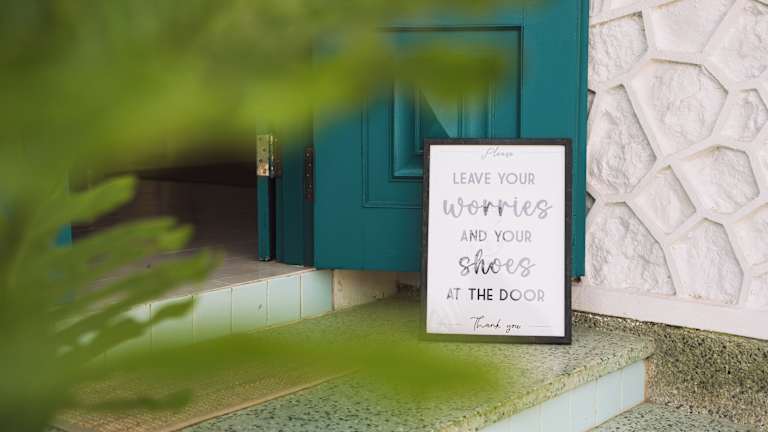 Please
LEAVE YOUR
worries
AND YOUR
shoes
AT THE DOOR
Thank you